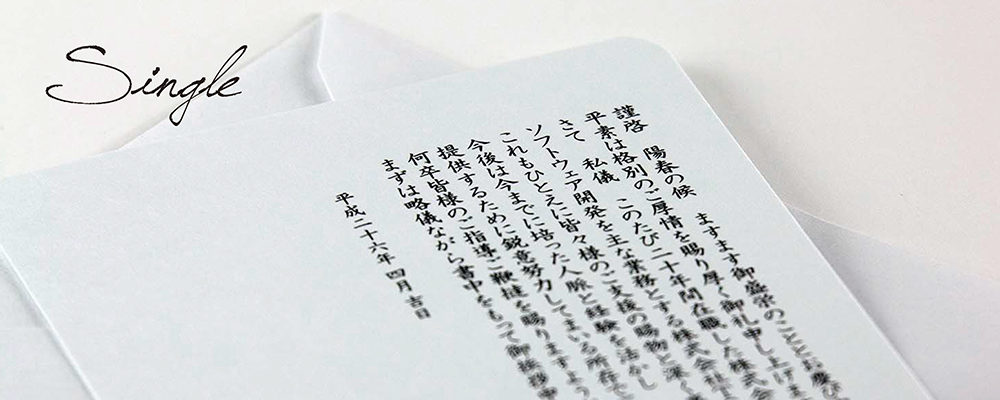 Single
謹啓 陽春の候 ますます御盛栄のこととお慶び
平素は格別のご厚情を賜り厚く御礼申し上げま
さて 私儀 このたび二十年間在職した株式会
ソフトウェア開発を主な業務とする株式会社
これもひとえに皆々様のご支援の賜物と深く
今後は今までに培った人脈と経験を活かし
提供するために鋭意努力してまいる所存で
何卒皆様のご指導ご鞭撻を賜りますよう
まずは略儀ながら書中をもって御挨拶申
平成二十六年 四月 吉日